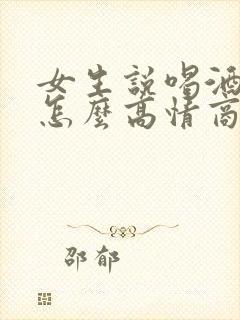 女生説喝酒
怎麼高情商
邵郁